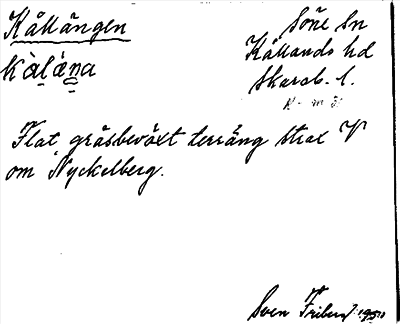 Kållängen
Söne sn
Kållands hd
Skarab. l.
Flat gräsbevöxt terräng strax V
om Nyckelberg.
Sven Friberg 1930